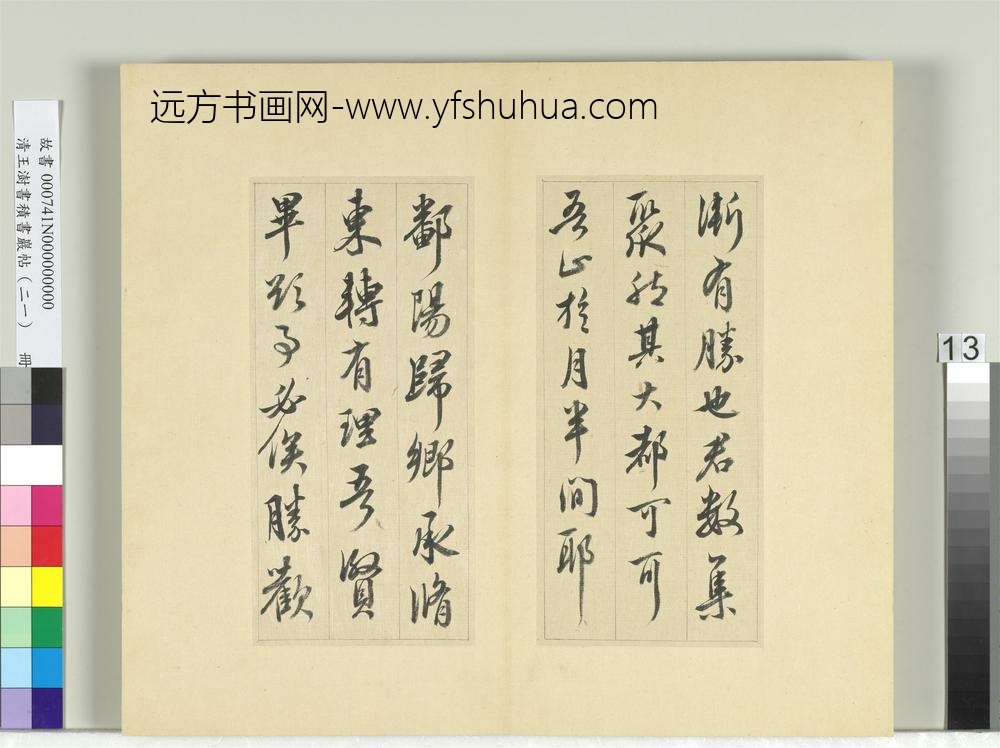 远方书画网-www.yfshuhua.com
漸有勝也君數集
聚然其大都可可
吾止於月半間耶
鄱陽歸鄉承脩
東轉有理吾賢
畢事必俟勝歡
故書 000741N000000000
清王澍書積書巖帖(二一) 冊
13